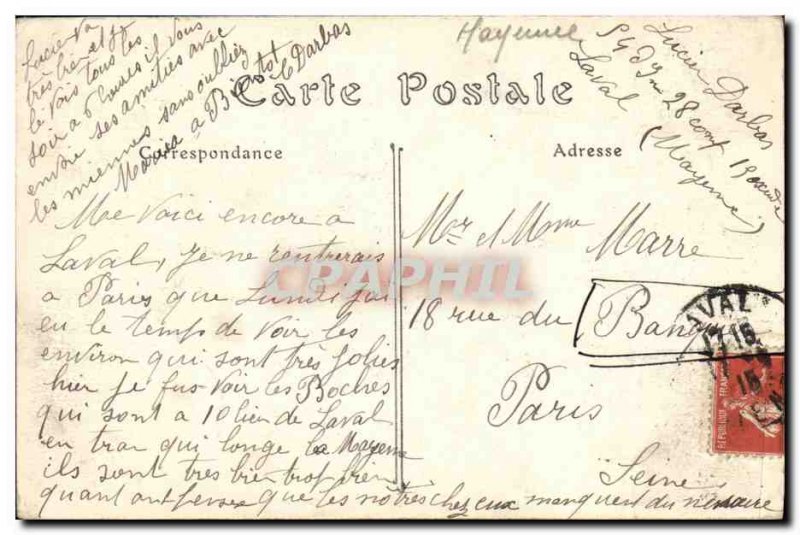 Lucien va
très bien et je
le vois tous les
soir a 6 heures il vous
envoie ses amitiés avec
les miennes sans oubliez
Maria a Bientot Darbas
Mayenne
Lucien Darbas
28
Laval (Mayenne)
Carte Postale
Correspondance
Adresse
Me Voici encore a
Laval, je ne rentrerais
a Paris que Lundi j'ai
eu le temps de voir les
environ qui sont très jolies
hier je fus voir les Boches
qui sont a 10 lieu de Laval
en tram qui longe la Mayenne
ils sont très bien trop bien
quant on pense que les nôtres chez eux manquent du nécessaire
Mr et Mme Marre
18 rue du
Paris
Seine
LAVAL
15
CRAPHIL